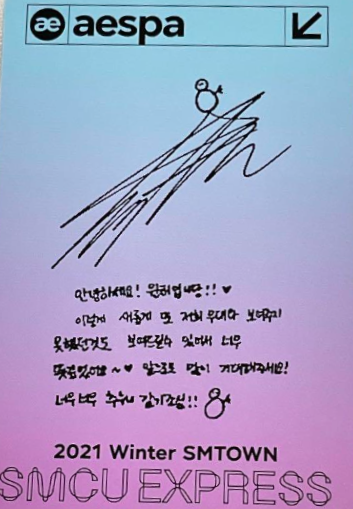 æ aespa
안녕하세요! 윈터입니당!! ♥
이렇게 새롭게 또 저희 무대와 보여주지
못했던것도 보여드릴수 있어서 너무
뜻깊었어요~♥ 앞으로도 많이 기대해주세요!
너무너무 추우니 감기조심!!
2021 Winter SMTOWN
SMCU EXPRESS